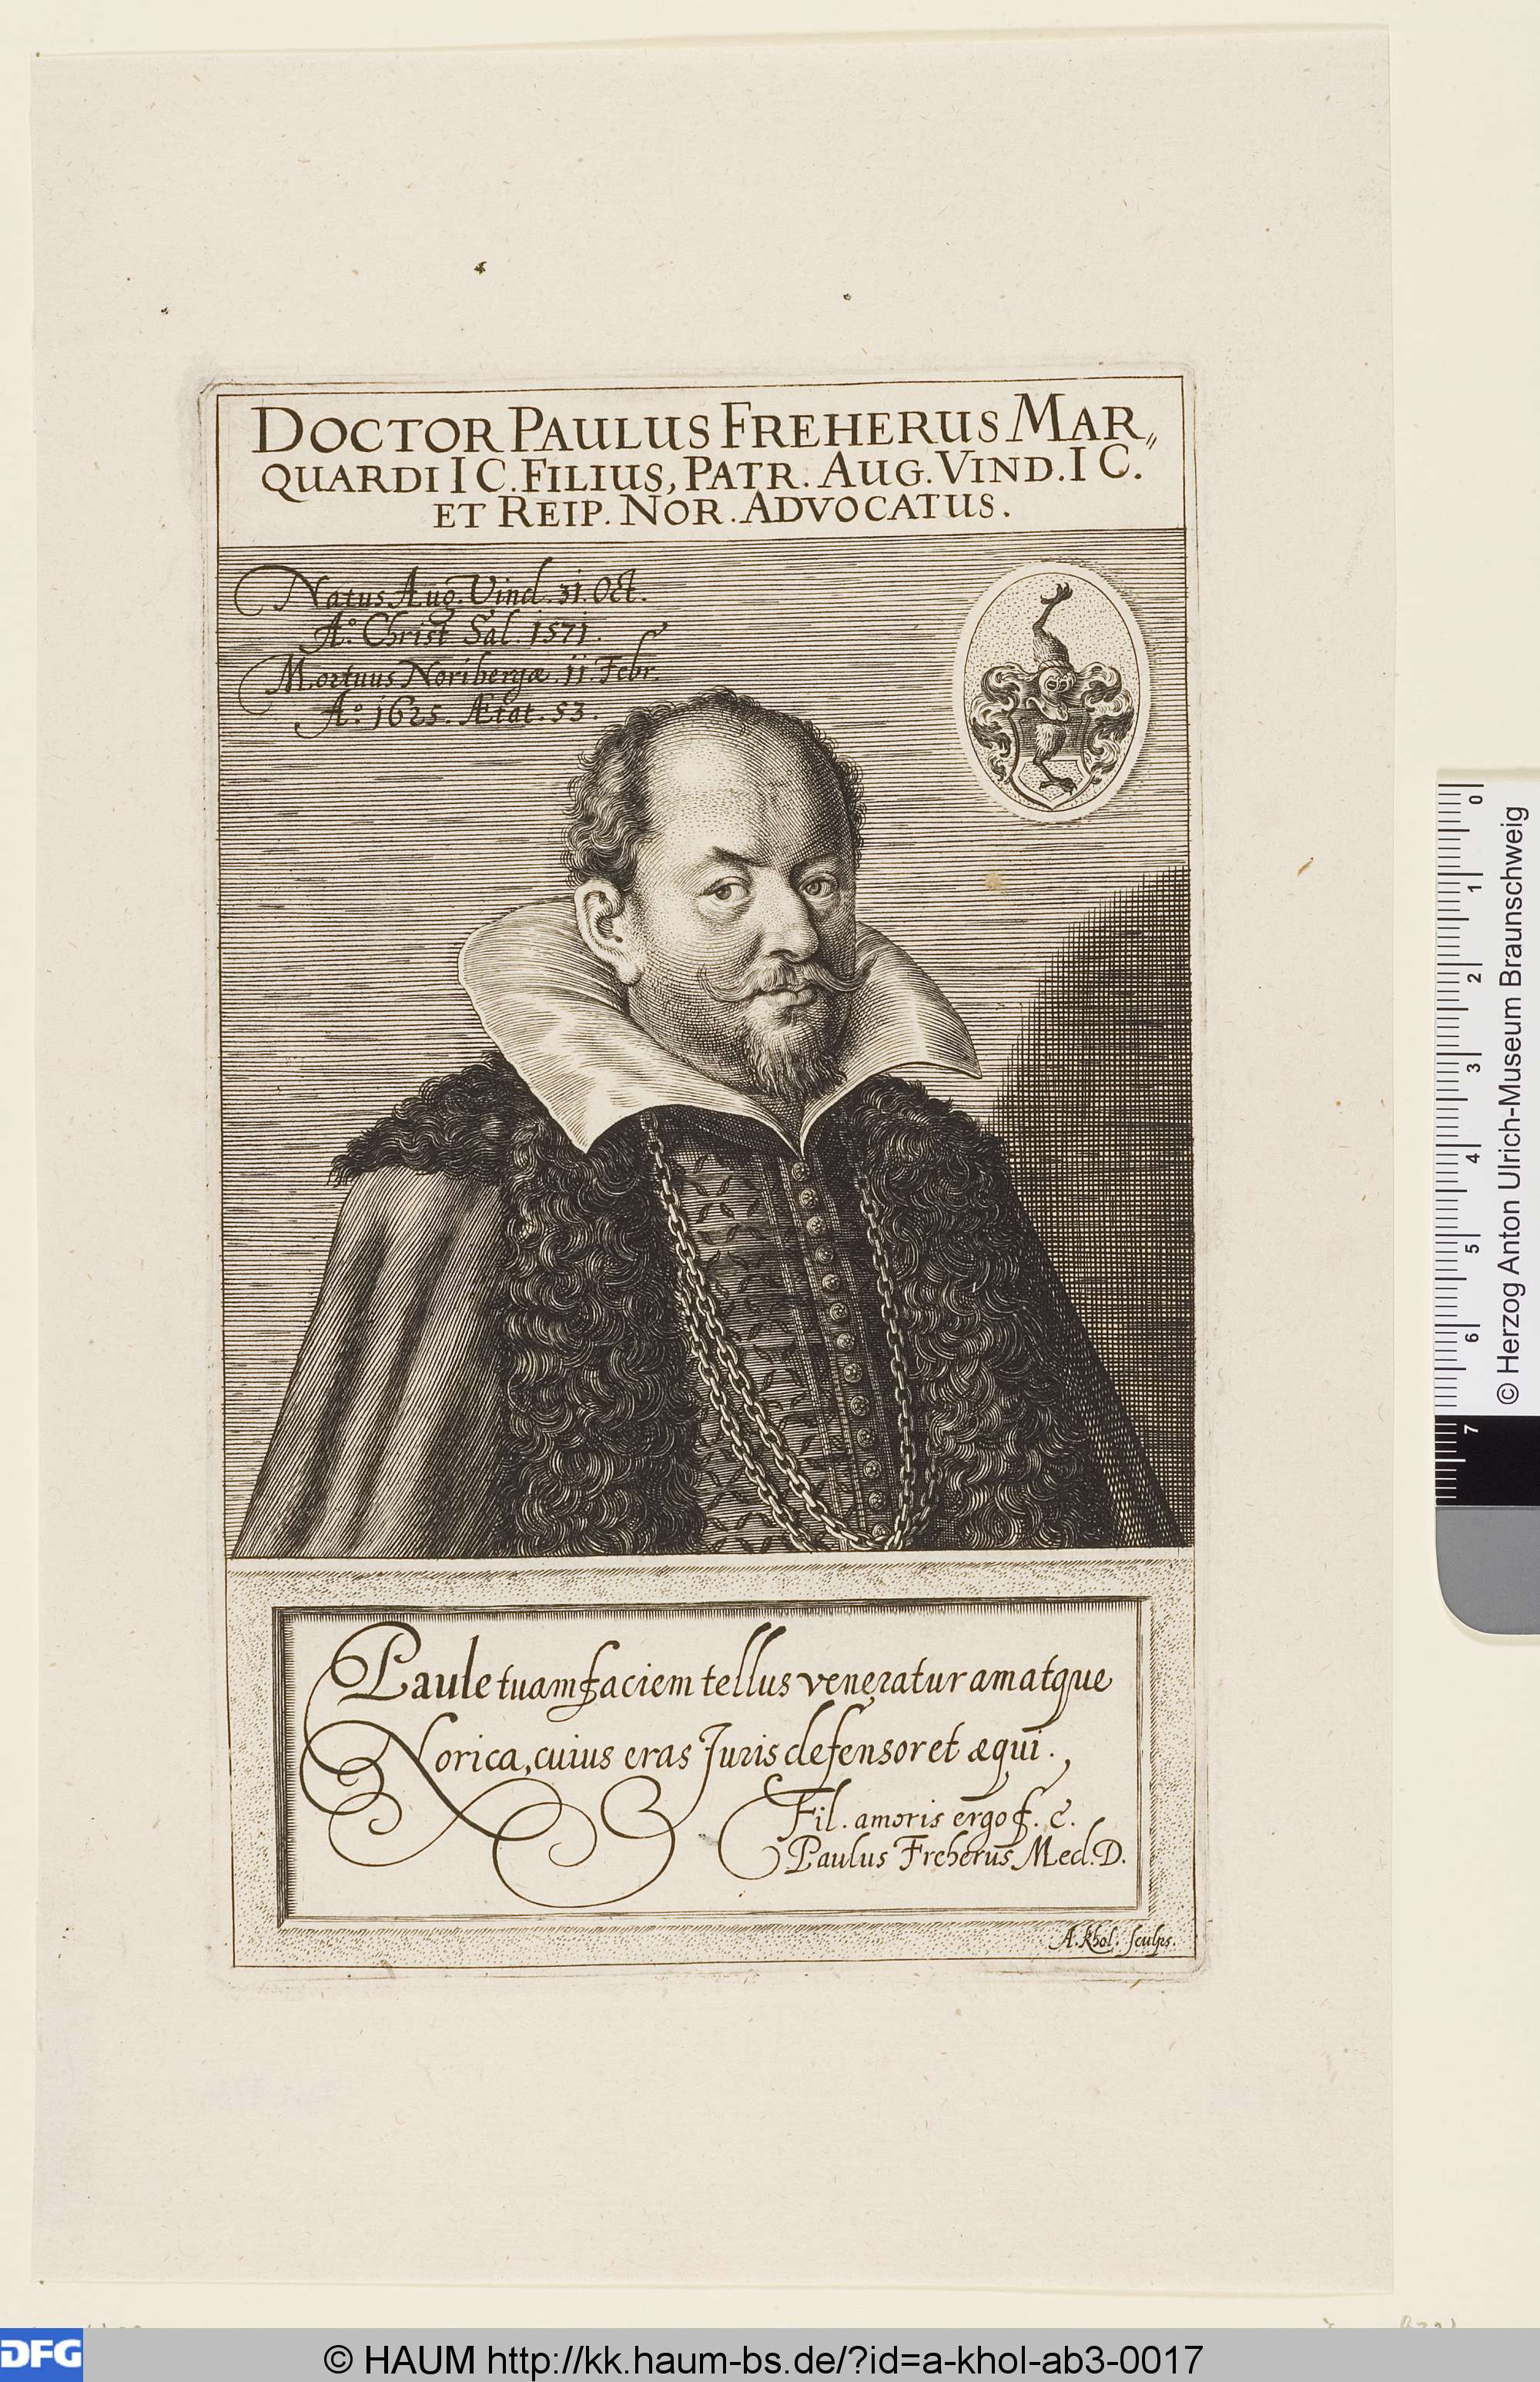 DOCTOR PAULUS FREHERUS MAR„
QUARDI I C. FILIUS, PATR. AUG. VIND. I C.
ET REIP. NOR. ADVOCATUS.
Natus Aug. Vind. 31. Oct.
A.º Christ Sal. 1571.
Mortuus Noribergæ. 11. Febr.
A.º 1625. Ætat. 53.
Paule tuam faciem tellus veneratur amatque
Norica, cuius eras Juris defensor et æqui.
Fil. amoris ergo f. c.
Paulus Freherus Med. D.
A. Khol. sculps.
0 1 2 3 4 5 6 7
© Herzog Anton Ulrich-Museum Braunschweig
DFG
© HAUM http://kk.haum-bs.de/?id=a-khol-ab3-0017